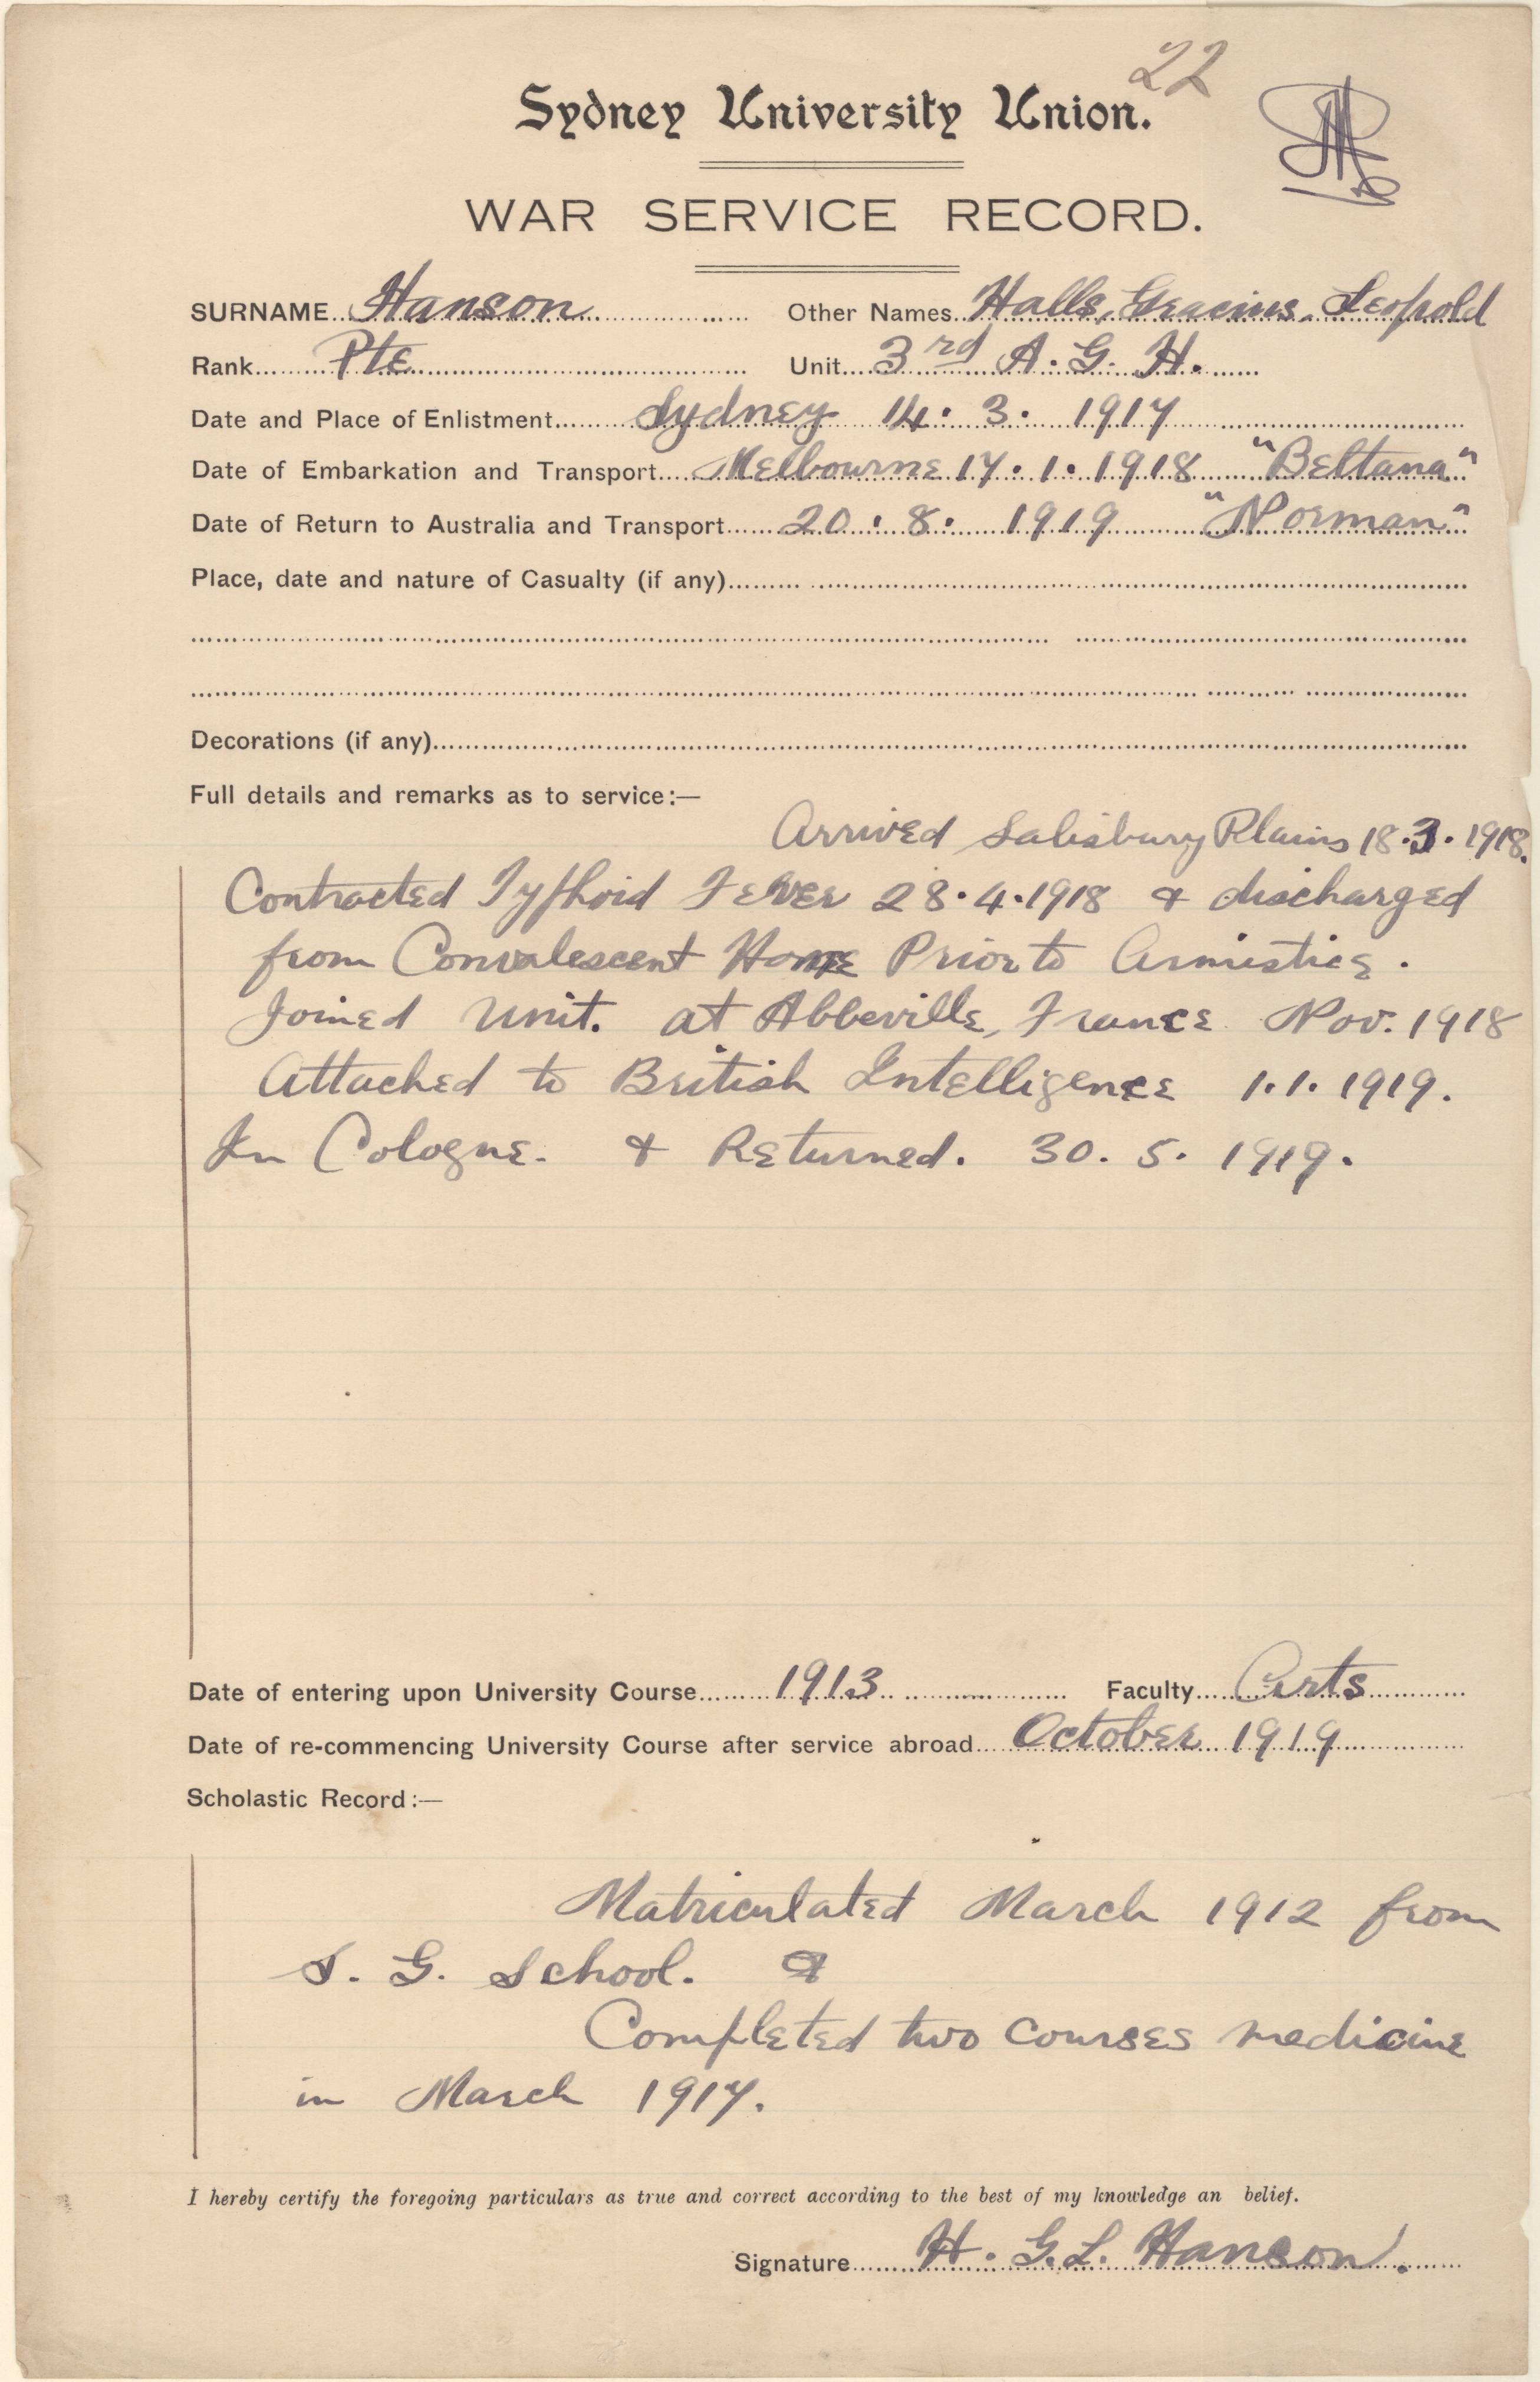 22
Sydney University Union.
WAR SERVICE RECORD.
SURNAME Hanson Other Names Halls, Gracius, Leopold
Rank Pte Unit 3rd A. G. H.
Date and Place of Enlistment Sydney 14. 3. 1917
Date of Embarkation and Transport Melbourne 17.1.1918 "Beltana"
Date of Return to Australia and Transport 20. 8. 1919 "Norman"
Place, date and nature of Casualty (if any)
Decorations (if any)
Full details and remarks as to service:—
Arrived Salisbury Plains 18.3.1918.
Contracted Typhoid Fever 28.4.1918 & discharged
from Convalescent Home Prior to Armistice.
Joined Unit. at Abbeville, France Nov. 1918
Attached to British Intelligence 1.1.1919.
In Cologne. & Returned. 30. 5. 1919.
Date of entering upon University Course 1913 Faculty Arts
Date of re-commencing University Course after service abroad October 1919
Scholastic Record:—
Matriculated March 1912 from
S. G. School. &
Completed two courses medicine
in March 1917.
I hereby certify the foregoing particulars as true and correct according to the best of my knowledge an belief.
Signature H. G. L. Hanson.